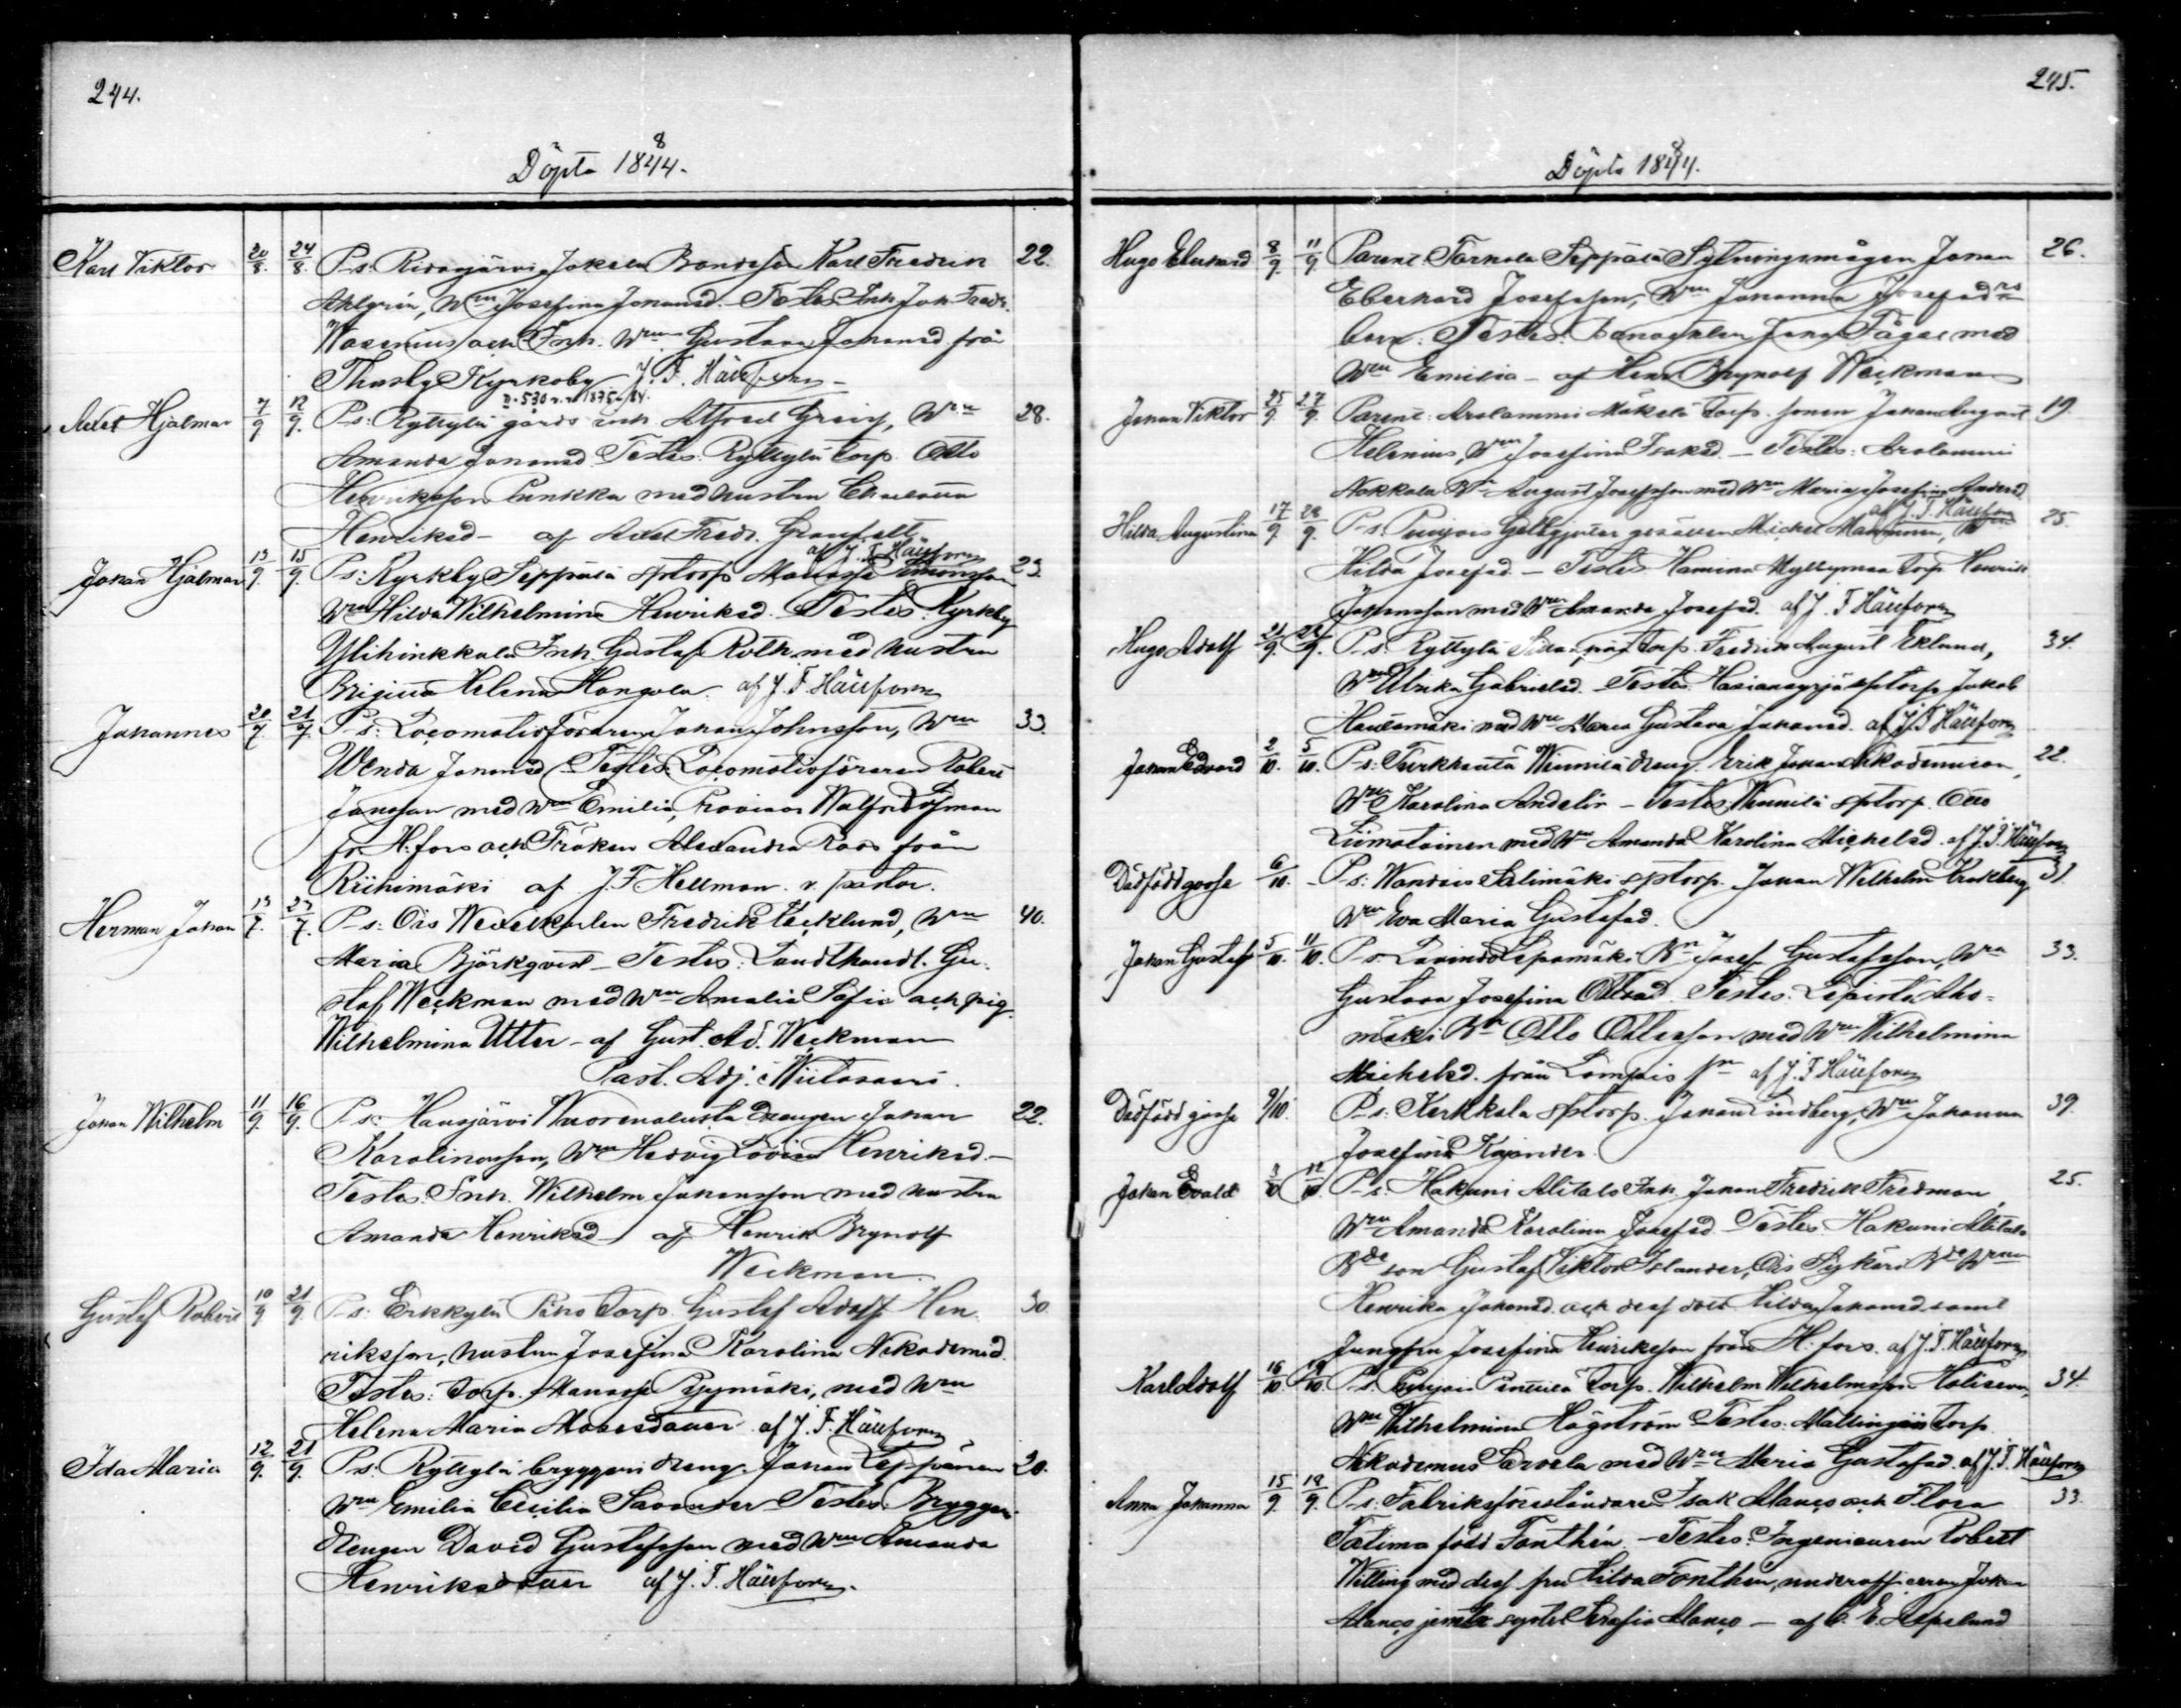 244.
Döpta 1884.
Karl Viktor 20/8. 24/8. P-s: Ridasjärvi Jokela Bondeson Karl Fredrik 22.
Ahlgrén, Wm Josefina Johansd. Testes: Inh. Joh. Fredr.
Wasenius och Inh. Wm Gustava Johansd. från
Thusby Kyrkoby J. F. Häufsvern
Axel Hjalmar 7/9 12/9. P-s: Ryttylä gårds inh. Alfred Greif, Wm 28.
Amanda Johansd. Testes: Ryttylä torp. Otto
Henriksson Punkka med hustru Charlotta
Henriksd - af Axel Fredr. Granfelt
af J. F. Häufsvern
Johan Hjalmar 13/9. 15/9. P-s: Kyrkby Seppälä sptorp Manasse Simonsson 23.
Wm Hilda Wilhelmina Henriksd. Testes: Kyrkby
Ylihinkkala Inh. Gustaf Roth med hustru
Brigitta Helena Mangola. af J. F. Häufsvern
Johannes 20/7 21/7. P-s: Locomotivföraren Johan Johnsson, Wm 33.
Wenda Johansd. Testes: Locomotivföraren Robert
Jansson med Wm Emilia, Provisor Walfrid
fr. H:fors och Fröken Alexandra Roos från
Riihimäki af J. F. Hellman v. pastor.
Herman Johan 13/7. 27/7. P-s: Ois Wexelkarlen Fredrik Wecklund, Wm 40.
Maria Björkqvist - Testes: Landthandl. Gu-
staf Weckman med Wm Amalia Sofia och pig.
Wilhelmina Utter - af Gust. Ad. Weckman
Past. Adj. i Wiitasaari.
Johan Wilhelm 11/9. 16/9. P-s: Hausjärvi Wuorenalusta Drängen Johan 22.
Karolinasson, Wm Hedvig Lovisa Henriksd. -
Testes: Inh. Wilhelm Johansson med hustru
Amanda Henriksd - af Henrik Brynolf
Weckman.
Gustaf Robert 10/9 21/9. P-s: Erkkylä Torp. Gustaf Adolf Hen- 30.
riksson, hustru Josefina Karolina Nikodemusd.
Testes: Torp. Manasse Pyymäki, med Wm
Helena Maria Mosesdotter af J. F. Häufsvern
Ida Maria 12/9. 21/9. P-s: Ryttylä bryggeri dreng. Johan Leppänen 20.
Wm Emilia Cecilia Savander Testes: Bryggeri-
drengen David Gustafsson med Wm Amanda
Henriksdotter af J. F. Häufsvern.
245.
Döpta 1884.
Hugo Eberhard 8/9. 11/9 Parent: Torhola Seppälä Sytningsmågen Johan 26.
Eberhard Josefsson, Wm Johanna Josefsdrs
barn. Testes: Johan Fågel med
Wm Emilia - af Henr. Brynolf Weckman
Johan Viktor 25/9. 27/9. Parent: Arolammi Mäkelä torp. sonen Johan August 19.
Helenius, Wm Josefina Isaksd. - Testes: Arolammi
Nokkala Bn August Josefsson med Wm Maria Josefina Andersd.
af J. F. Häufsvern
Hilda Augustina 17/9. 28/9. P-s: Puujois Gelbgjutar gesällen Michel Manninen, 25.
Hilda Josefsd. - Testes: Hamina Myllymaa torp. Henrik
Johansson med Wm Amanda Josefsd. af J. F. Häufsvern
Hugo Adolf 21/9. 28/9. P-s. Ryttylä torp. Fredrik August Eklund, 34.
Wm Ulrika Gabrielsd. Testes: sptorp. Jakob
Hautamäki med Wm Maria Gustava Johansd. af J. F. Häufsvern
Johan Edvard 2/10. 5/10. P-s: Turkhauta Winnilä dreng. Erik Johan Nikodemusson, 22.
Wm Karolina Andelin - Testes: Winnilä sptorp. Otto
Liimatainen med Wm Amanda Karolina Michelsd. af J. F. Häufsvern
Dödfödd gosse 6/10. - P-s: Wandois Salimäki sptorp. Johan Wilhelm 31.
Wm Eva Maria Gustafsd.
Johan Gustaf 5/10. 11/10. P-s Lepomäki Bn Josef Gustafsson, Wm 33.
Gustava Josefina Ottosd. Testes: Aho-
mäki Bn Otto Ottosson med Wm Wilhelmina
Michelsd. från Lampis sn af J. F. Häufsvern
Dödfödd gosse 9/10. P-s: Kerkkola sptorp. Johan Lindberg, Wm Johanna 39.
Josefina Kajander.
Johan Evald 3/10 12/10. P-s: Hakuni Alitalo Inh. Johan Fredrik Fredman, 25.
Wm Amanda Karolina Josefsd. Testes: Hakuni Alitalo
Bde son Gustaf Viktor Islander, Ois Sykäri Bde Wm
Henrika Johansd. och dess dott. Hilda Johansd. samt
Jungfru Josefina Henriksson från H:fors. af J. F. Häufsvern
Karl Adolf 16/10. 19/10. P-s: Puujois Penttilä torp. Wilhelm Wilhelmsson 34.
Wm Wilhelmina Högström Testes: torp.
Nikodemus Sarvela med Wm Maria Gustafsd. af J. F. Häufsvern
Anna Johanna 15/9. 19/9. P-s: Fabriksföreståndare Isak Alanco och Flora 33.
Fatima född Fonthén. - Testes: Ingenieuren Robert
Willing med dess fru Hilda Fonthén, underofficeren Johan
Alanco jemte syster Serafia Alanco -